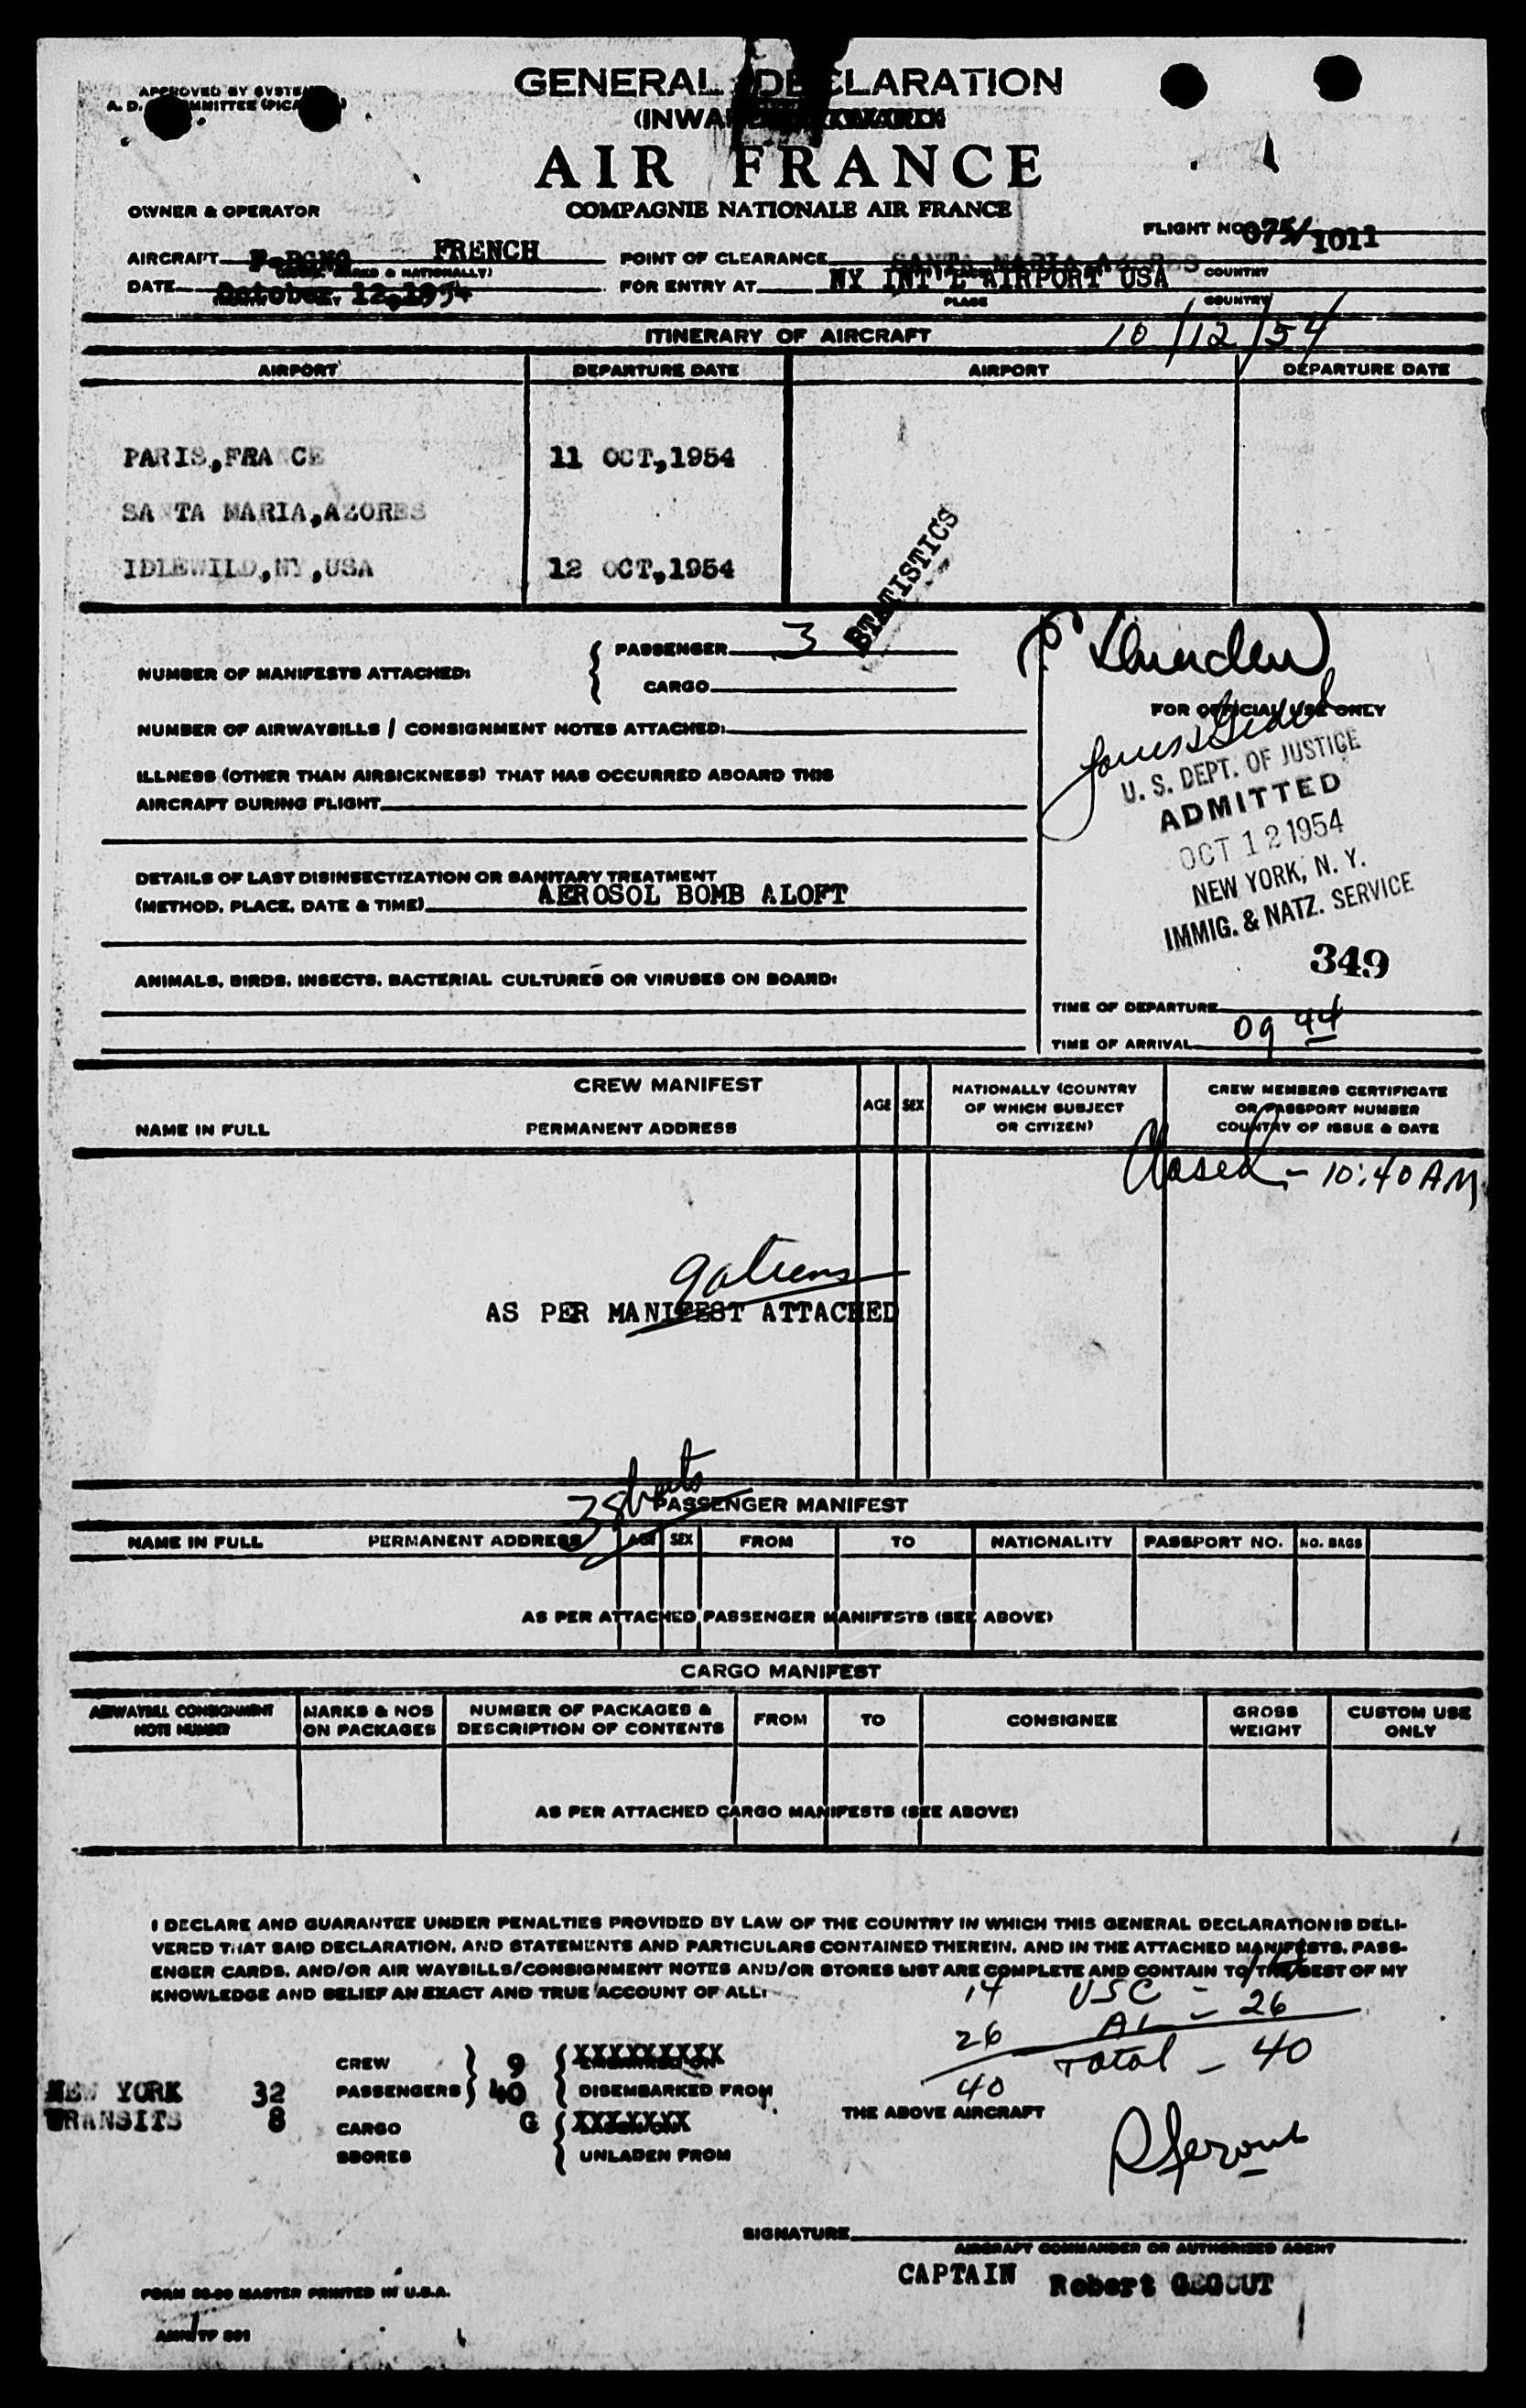 GENERAL DECLARATION
APPROVED BY
A. D.
(INWA
AIR FRANCE
COMPAGNIE NATIONALE AIR FRANCE
OWNER & OPERATOR
FLIGHT NO 075/1011
AIRCRAFT FRENCH
(MARKS & NATIONALLY)
POINT OF CLEARANCE SANTA MARIA AZORES
COUNTRY
DATE October 12,1954
FOR ENTRY AT NY INT'L AIRPORT USA
PLACE COUNTRY
ITINERARY OF AIRCRAFT 10/12/54
AIRPORT DEPARTURE DATE AIRPORT DEPARTURE DATE
PARIS,FRA CE 11 OCT,1954
SA TA MARIA,AZORES
IDLEWILD,NY,USA 12 OCT,1954
STATISTICS
NUMBER OF MANIFESTS ATTACHED:
PASSENGER 3
CARGO
NUMBER OF AIRWAYBILLS / CONSIGNMENT NOTES ATTACHED:
ILLNESS (OTHER THAN AIRSICKNESS) THAT HAS OCCURRED ABOARD THIS
AIRCRAFT DURING FLIGHT
DETAILS OF LAST DISINSECTIZATION OR SANITARY TREATMENT
(METHOD, PLACE, DATE & TIME) AEROSOL BOMB ALOFT
ANIMALS, BIRDS, INSECTS, BACTERIAL CULTURES OR VIRUSES ON BOARD:
FOR OFFICIAL USE ONLY
U. S. DEPT. OF JUSTICE
ADMITTED
OCT 12 1954
NEW YORK, N. Y.
IMMIG. & NATZ. SERVICE
349
TIME OF DEPARTURE
TIME OF ARRIVAL 09 44
CREW MANIFEST
NAME IN FULL PERMANENT ADDRESS
AGE SEX
NATIONALLY (COUNTRY
OF WHICH SUBJECT
OR CITIZEN)
CREW MEMBERS CERTIFICATE
OR PASSPORT NUMBER
COUNTRY OF ISSUE & DATE
Closed - 10:40 AM
AS PER MANIFEST ATTACHED
3 sheets
PASSENGER MANIFEST
NAME IN FULL PERMANENT ADDRESS AGE SEX FROM TO NATIONALITY PASSPORT NO. NO. BAGS
AS PER ATTACHED PASSENGER MANIFESTS (SEE ABOVE)
CARGO MANIFEST
AIRWAYBILL CONSIGNMENT
NOTE NUMBER
MARKS & NOS
ON PACKAGES
NUMBER OF PACKAGES &
DESCRIPTION OF CONTENTS
FROM TO CONSIGNEE
GROSS
WEIGHT
CUSTOM USE
ONLY
AS PER ATTACHED CARGO MANIFESTS (SEE ABOVE)
I DECLARE AND GUARANTEE UNDER PENALTIES PROVIDED BY LAW OF THE COUNTRY IN WHICH THIS GENERAL DECLARATION IS DELI-
VERED THAT SAID DECLARATION, AND STATEMENTS AND PARTICULARS CONTAINED THEREIN, AND IN THE ATTACHED MANIFESTS, PASS-
ENGER CARDS, AND/OR AIR WAYBILLS/CONSIGNMENT NOTES AND/OR STORES LIST ARE COMPLETE AND CONTAIN TO THE BEST OF MY
KNOWLEDGE AND BELIEF AN EXACT AND TRUE ACCOUNT OF ALL:
14 USC - 14
26 AL - 26
40 Total - 40
NEW YORK 32
TRANSITS 8
CREW 9
PASSENGERS 40
XXXXXXXXX
DISEMBARKED FROM
CARGO G
SBORES
XXXXXXX
UNLADEN FROM
THE ABOVE AIRCRAFT
SIGNATURE
AIRCRAFT COMMANDER OR AUTHORISED AGENT
CAPTAIN Robert GEGOUT
MASTER PRINTED IN U.S.A.